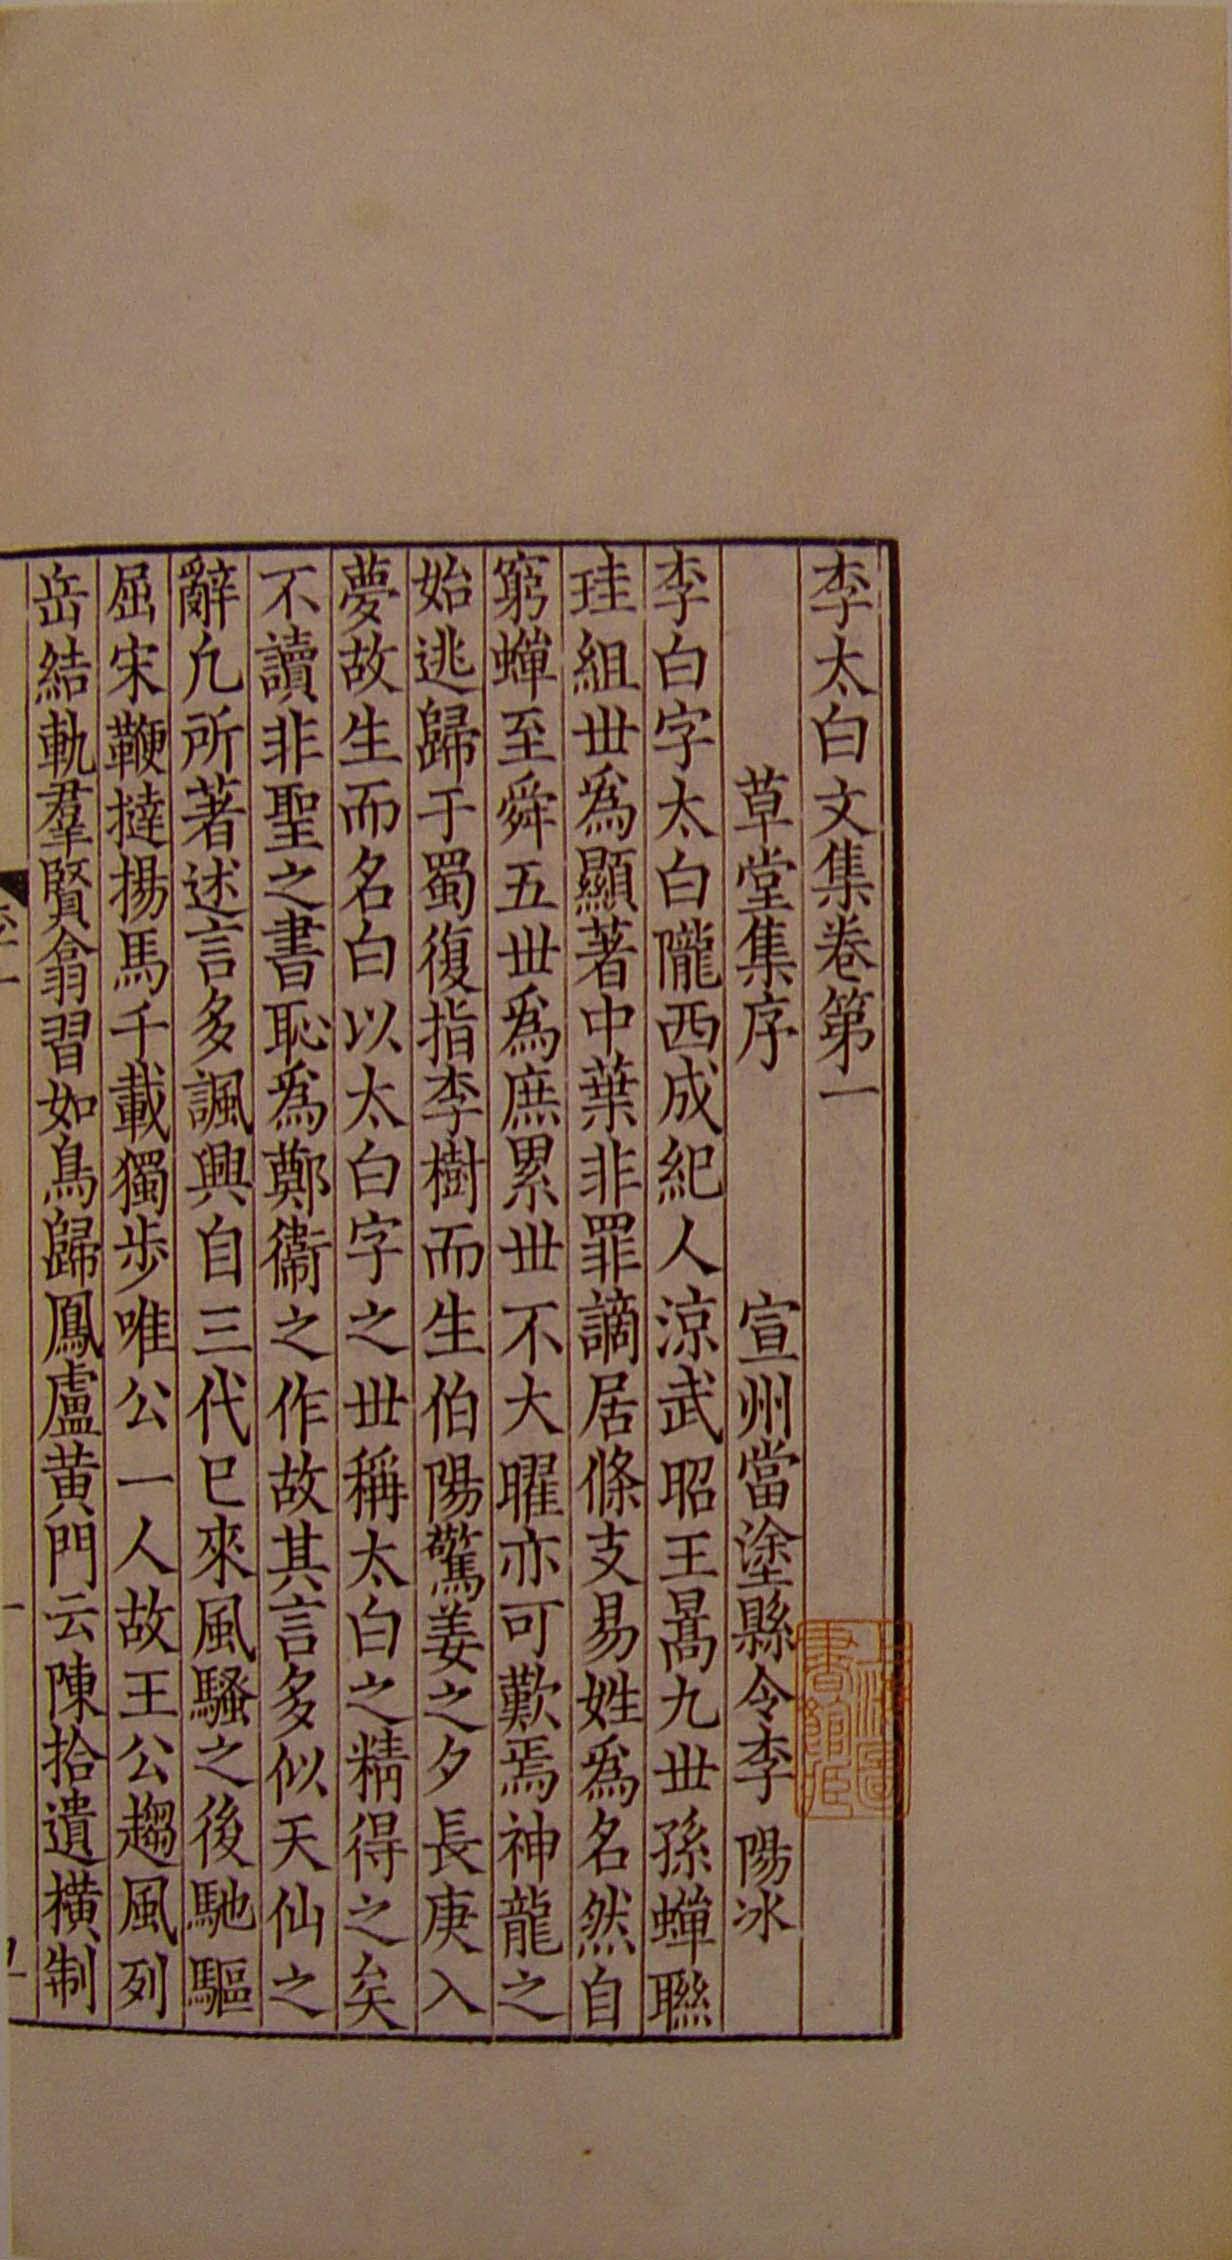 李太白文集卷第一
草堂集序 宣州當塗縣令李 陽冰
李白字太白隴西成紀人涼武昭王暠九丗孫蟬聯
珪組丗爲顯著中葉非罪謫居條支易姓爲名然自
窮蟬至舜五丗爲庶累丗不大曜亦可歎焉神龍之
始逃歸于蜀復指李樹而生伯陽驚姜之夕長庚入
夢故生而名白以太白字之丗稱太白之精得之矣
不讀非聖之書恥爲鄭衞之作故其言多似天仙之
辭凢所著述言多諷興自三代已來風騷之後馳驅
屈宋鞭撻揚馬千載獨步唯公一人故王公趨風列
岳結軌羣賢翕習如鳥歸鳳盧黃門云陳拾遺橫制
上海圖
書館藏